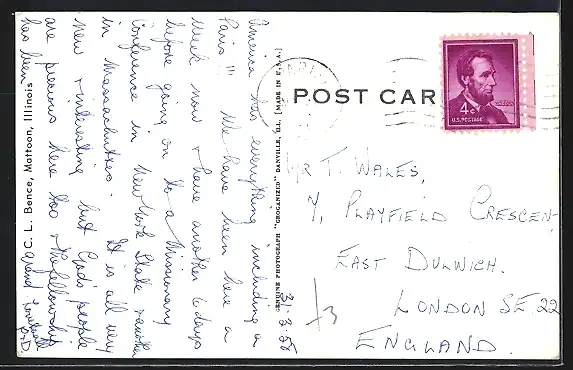 America has everything including a
Paris!!! We have been here a
week now & have another 6 days
before going on to a Missionary
Conference in New York State & another
in Massachusettes. It is all very
new & interesting but God's people
are precious here too & the fellowship
has been grand.
C. L. Bence, Mattoon, Illinois
GENUINE PHOTOGRAPH "GROGANIZED" DANVILLE, ILL. [MADE IN U.S.A.]
POST CAR
4¢
U.S. POSTAGE
LINCOLN
31.3.58
Mr T. WALES,
7, PLAYFIELD CRESCEN-
EAST DULWICH.
LONDON SE.22
ENGLAND.